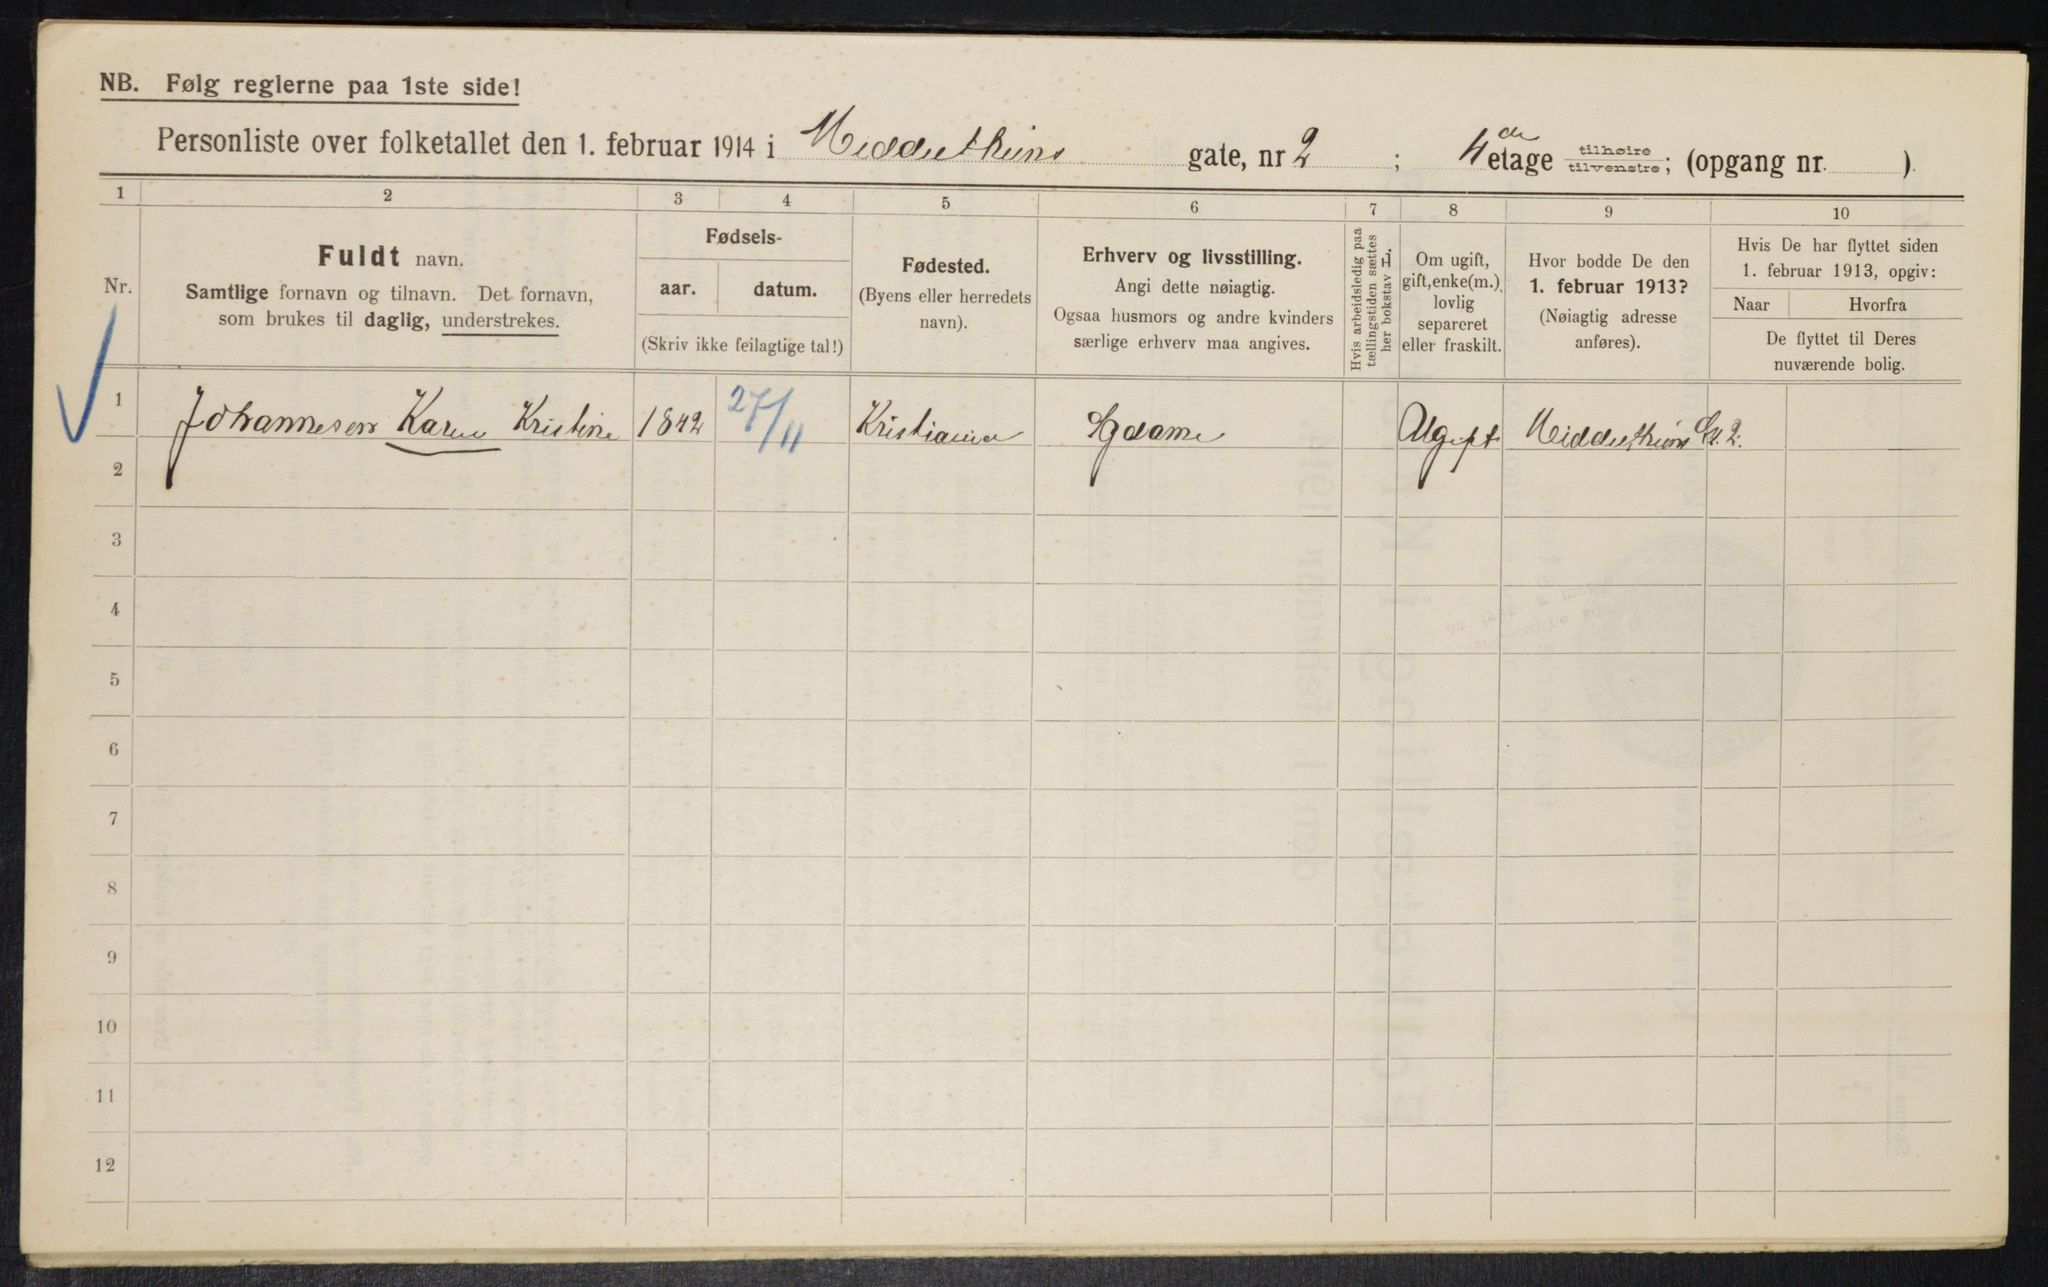 NB. Følg reglerne paa 1ste side!
Personliste over folketallet den 1. februar 1914 i Middelthuns gate, nr 2 ; 4de etage tilhøire / tilvenstre; (opgang nr. ).
1 2 3 4 5 6 7 8 9 10
Nr.
Fuldt navn.
Samtlige fornavn og tilnavn. Det fornavn,
som brukes til daglig, understrekes.
Fødsels-
aar. datum.
(Skriv ikke feilagtige tal!)
Fødested.
(Byens eller herredets
navn).
Erhverv og livsstilling.
Angi dette nøiagtig.
Ogsaa husmors og andre kvinders
særlige erhverv maa angives.
Hvis arbeidsledig paa
tællingstiden sættes
her bokstav L.
Om ugift,
gift, enke(m.),
lovlig
separeret
eller fraskilt.
Hvor bodde De den
1. februar 1913?
(Nøiagtig adresse
anføres).
Hvis De har flyttet siden
1. februar 1913, opgiv:
Naar Hvorfra
De flyttet til Deres
nuværende bolig.
1 Johannesen Karen Kristine 1842 27/11 Kristiania Ugift Middelthuns Gt. 2.
2
3
4
5
6
7
8
9
10
11
12